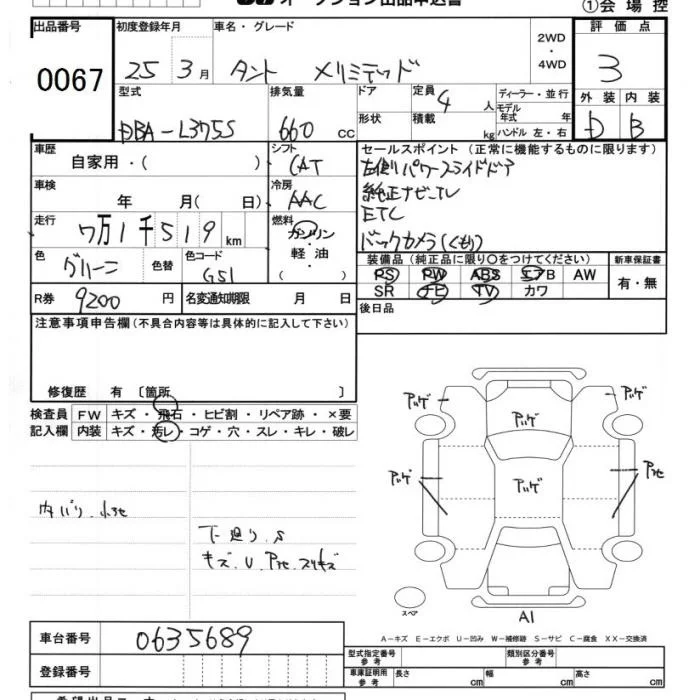 オークション出品申込書
①会場控
出品番号 初度登録年月 車名・グレード 評価点
0067 25 3月 タント メリミテッド 2WD・4WD 3
型式 排気量 ドア 定員 4 人 ディーラー・並行 外装 内装
DBA-L375S 660 cc 形状 積載 kg モデル年式 年 ハンドル 左・右 D B
車歴 自家用・( ) シフト CAT
セールスポイント (正常に機能するものに限ります)
左側パワースライドドア
純正ナビ・TV
ETC
バックカメラ(くもり)
車検 年 月( 日) 冷房 AAC
走行 7万1千519km 燃料 ガソリン・軽油・( )
色 グリーン 色替 色コード G51
装備品 (純正品に限り○をつけてください) 新車保証書
PS PW ABS エアB AW 有・無
SR ナビ TV カワ
R券 9200円 名変通知期限 月 日
後日品
注意事項申告欄 (不具合内容等は具体的に記入して下さい)
修復歴 有 〔箇所 〕
検査員 FW キズ・飛石・ヒビ割・リペア跡・×要
記入欄 内装 キズ・汚レ・コゲ・穴・スレ・キレ・破レ
アバゲ アバゲ アバゲ
アバゲ アバゲ Pアセ
内バリ、小アセ
下廻り、S
キズ、U、Pアセ、スリキズ
スペア
A1
A-キズ E-エクボ U-凹み W-補修跡 S-サビ C-腐食 XX-交換済
車台番号 0635689
登録番号
型式指定番号 参考 類別区分番号 参考
車庫証明用 参考 長さ cm 幅 cm 高さ cm